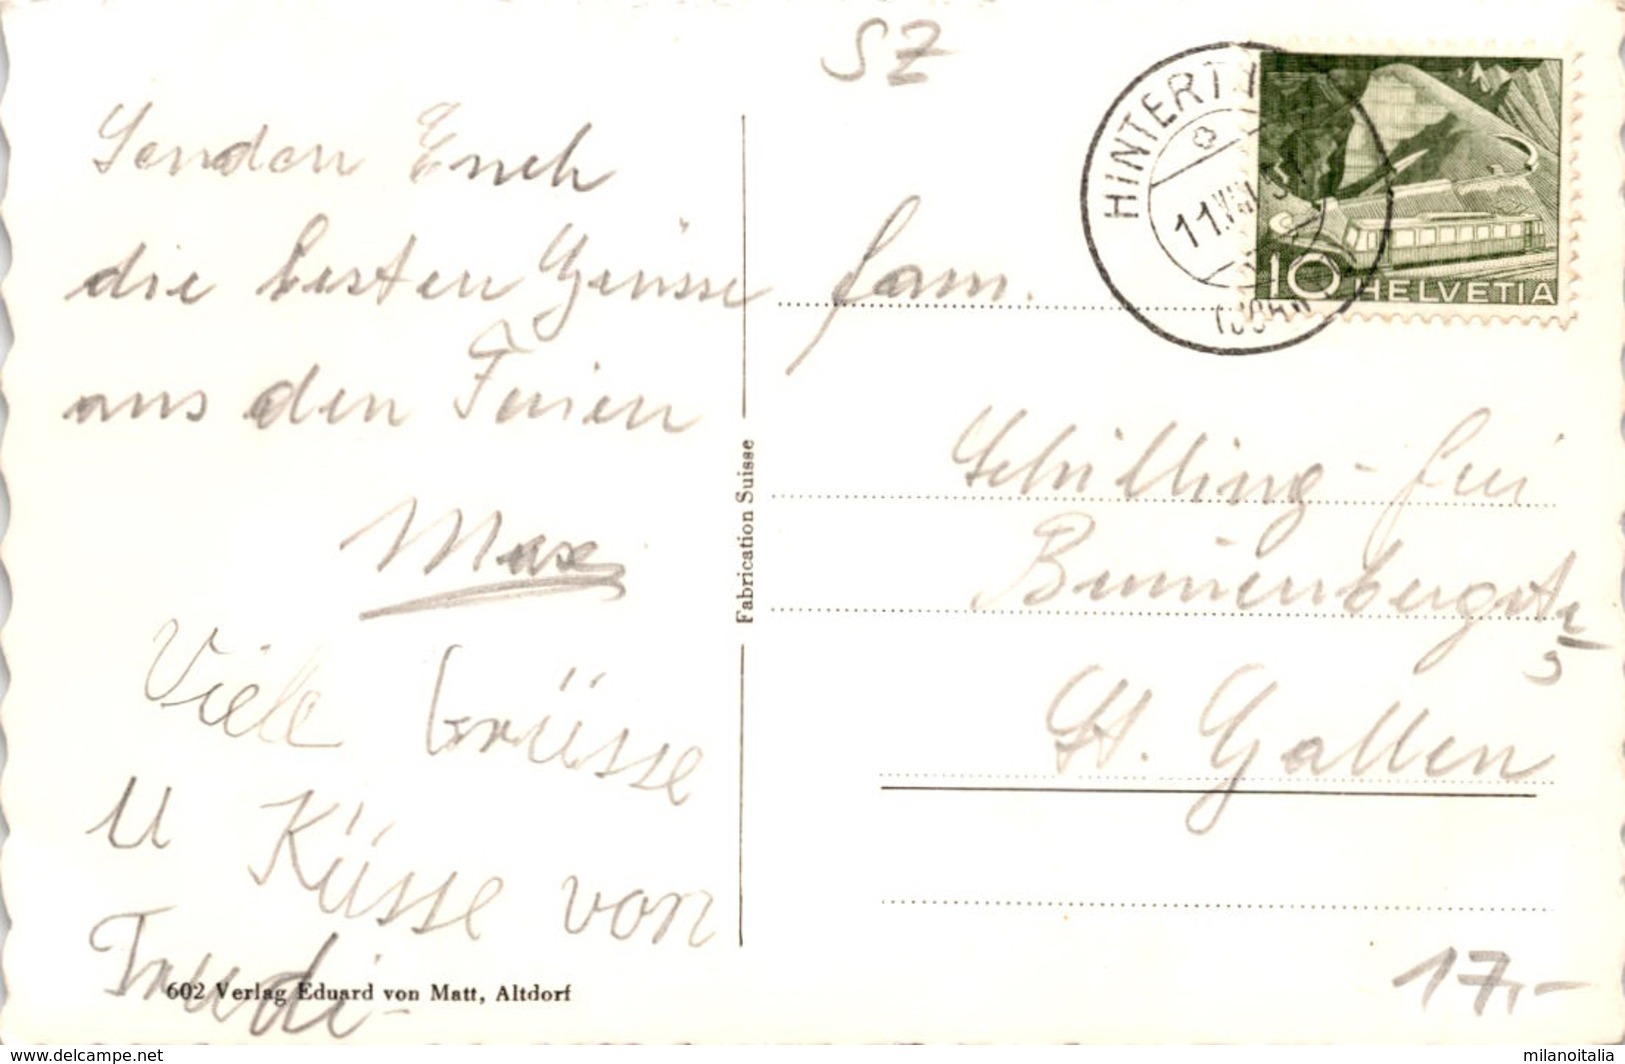 SZ
Senden Euch
die besten Grüsse
aus den Ferien
Max
Viele Grüsse
u Küsse von
Trudi
602 Verlag Eduard von Matt, Altdorf
Fabrication Suisse
HINTERT
11.VIII.51
10 HELVETIA
Fam.
Schilling-Frei
St. Gallen
17,-
www.delcampe.net
milanoitalia